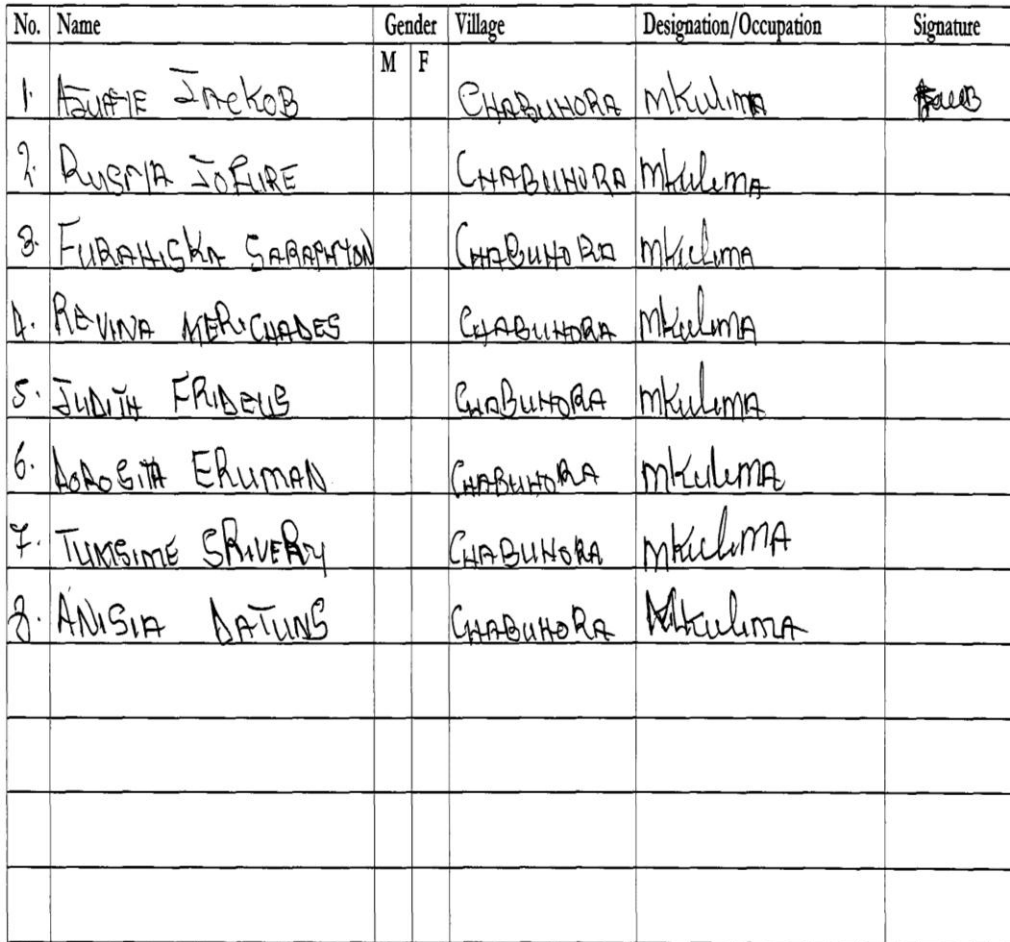 No. Name Gender Village Designation/Occupation Signature
M F
1. JACKOB CHABUHORA mkulima
2. RUSMIA JOFURE CHABUHORA mkulima
3. FURAHISKA SARAPHYON CHABUHORA mkulima
4. REVINA MERICHADES CHABUHORA mkulima
5. JUDITH FRIDEUS CHABUHORA mkulima
6. ERUMAN CHABUHORA mkulima
7. TUMSIME SRIVERY CHABUHORA mkulima
8. ANISIA DATUNS CHABUHORA Mkulima